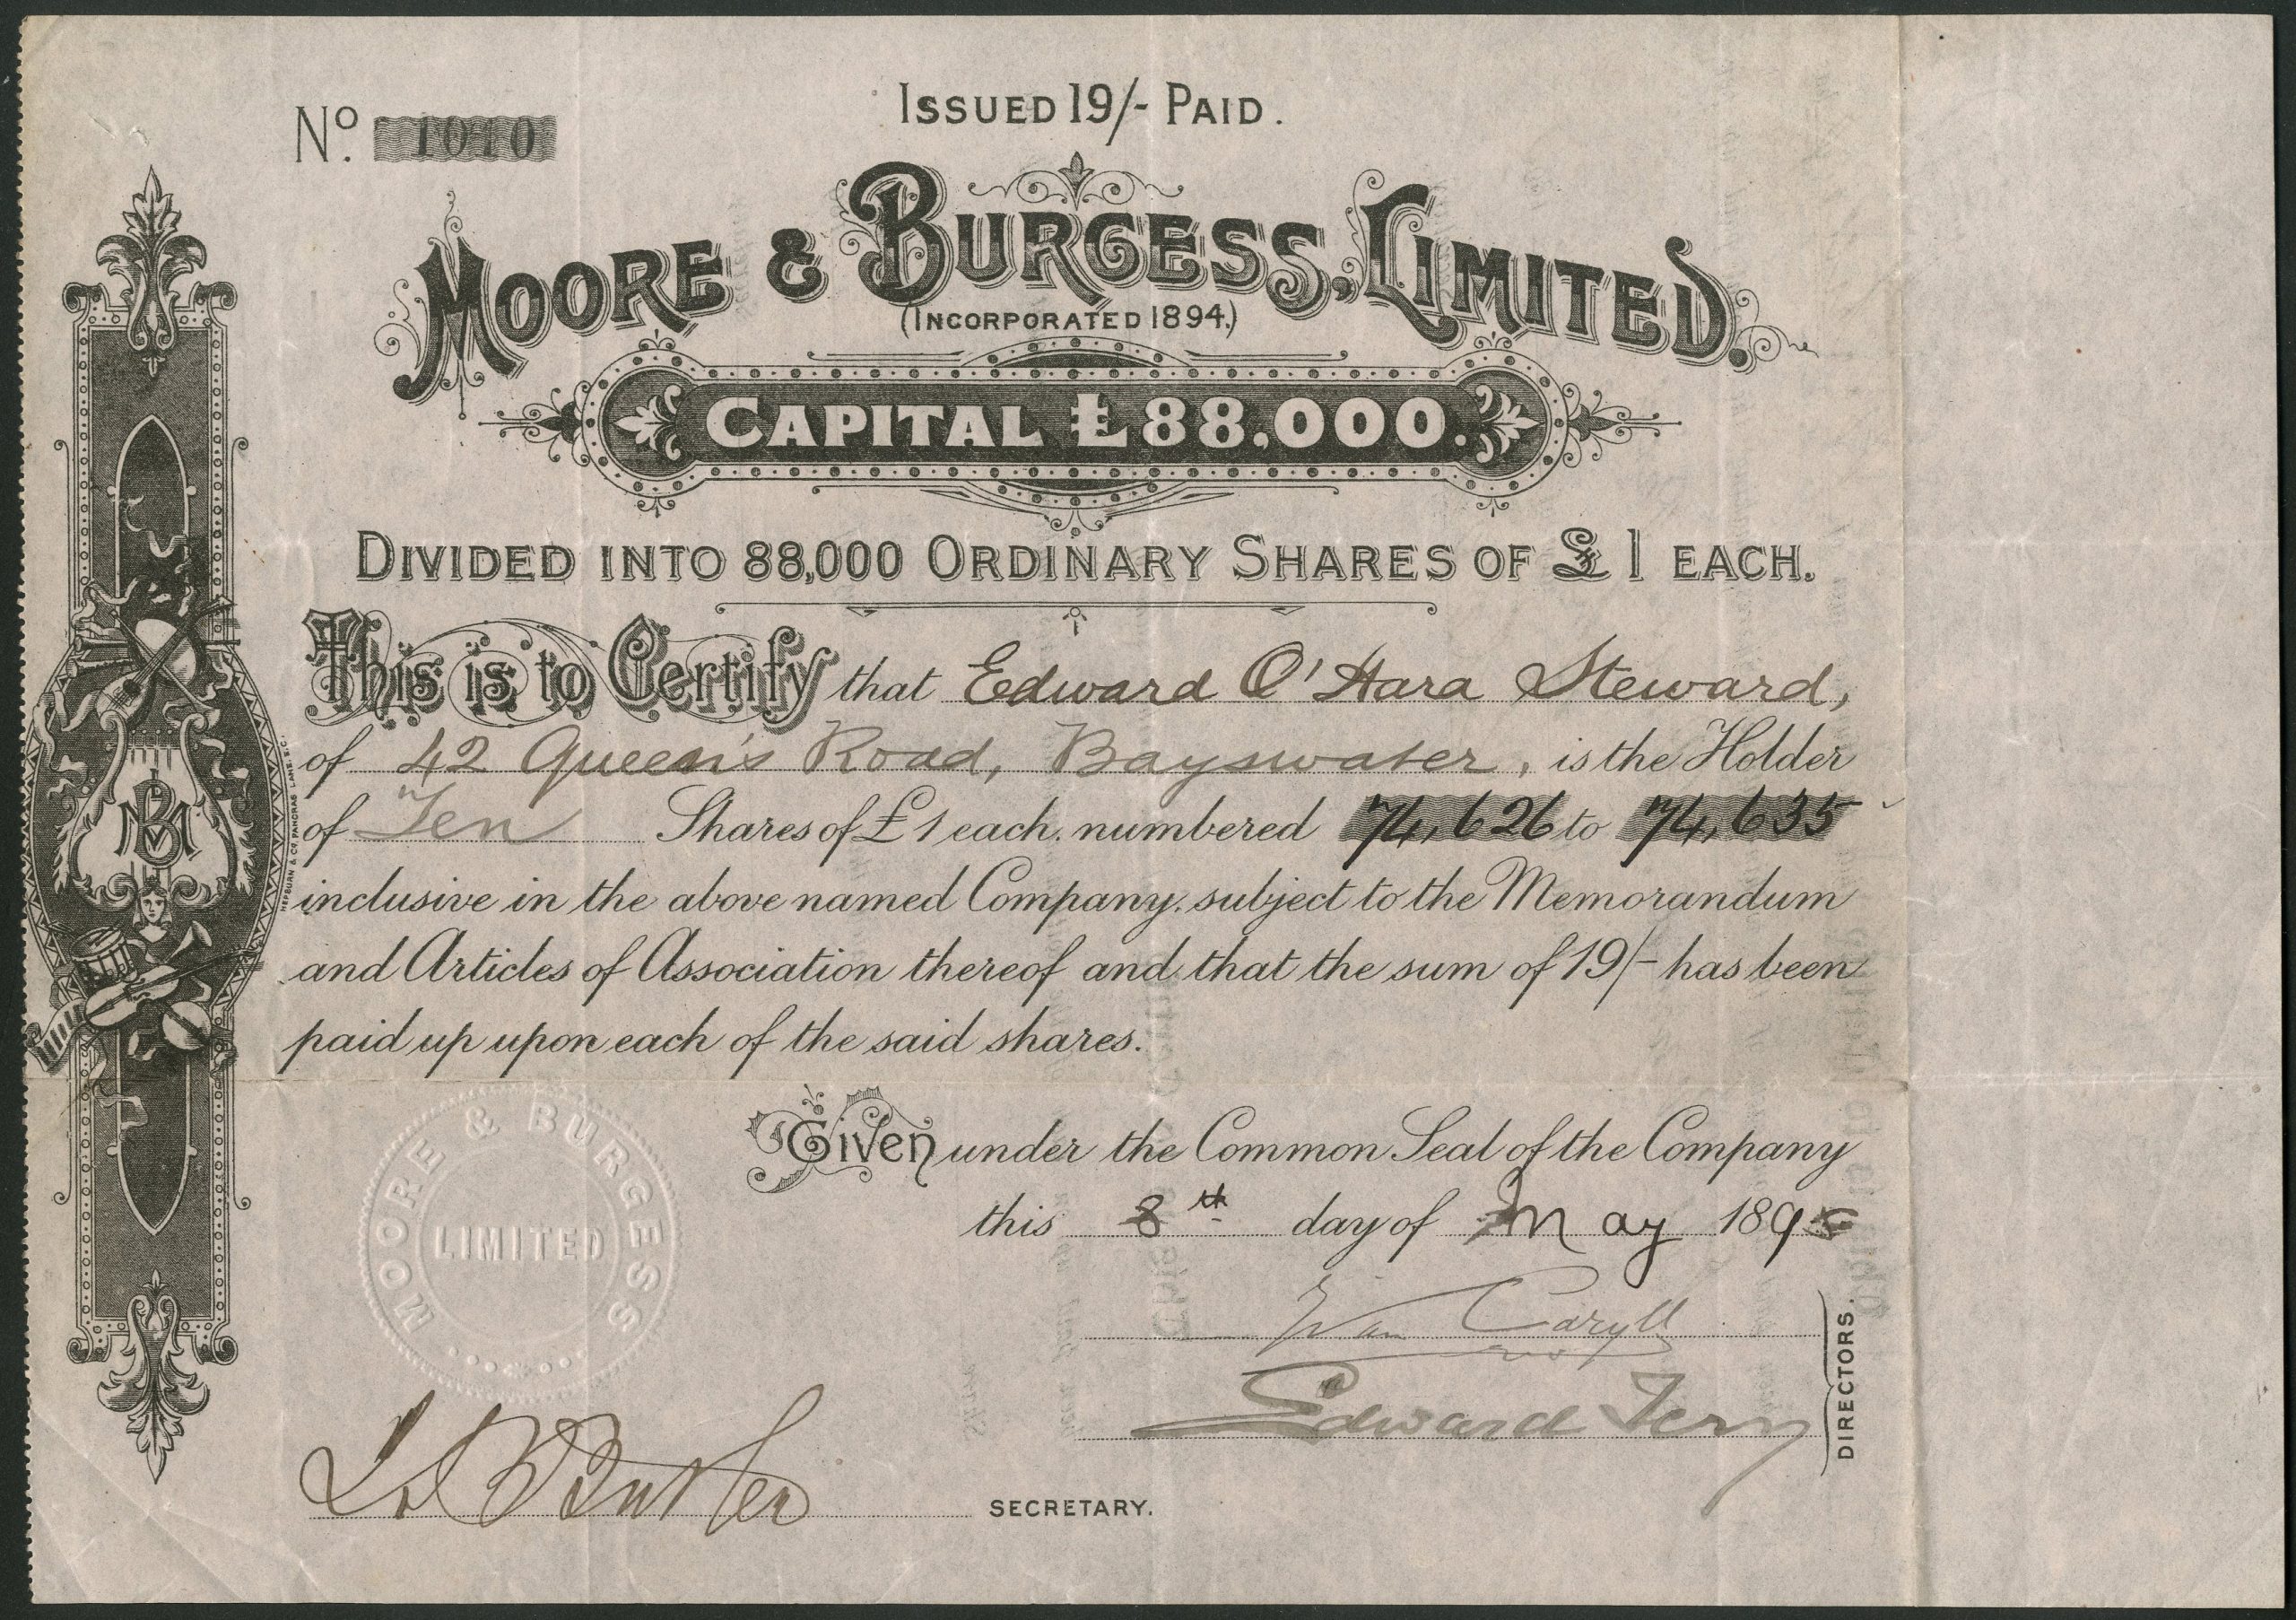 Issued 19/- Paid.
No. 1010
Moore & Burgess, Limited.
(Incorporated 1894.)
Capital £88,000.
Divided into 88,000 Ordinary Shares of £1 each.
This is to Certify that Edward O'Hara Steward,
of 42 Queen's Road, Bayswater, is the Holder
of Ten Shares of £1 each, numbered 74,626 to 74,635
inclusive in the above named Company, subject to the Memorandum
and Articles of Association thereof and that the sum of 19/- has been
paid up upon each of the said shares.
Given under the Common Seal of the Company
this 8th day of May 189
Ivan Caryll
Edward Terry
DIRECTORS.
Butler
SECRETARY.
MOORE & BURGESS
LIMITED
MBL
HEPBURN & CO. PANCRAS LANE. E.C.